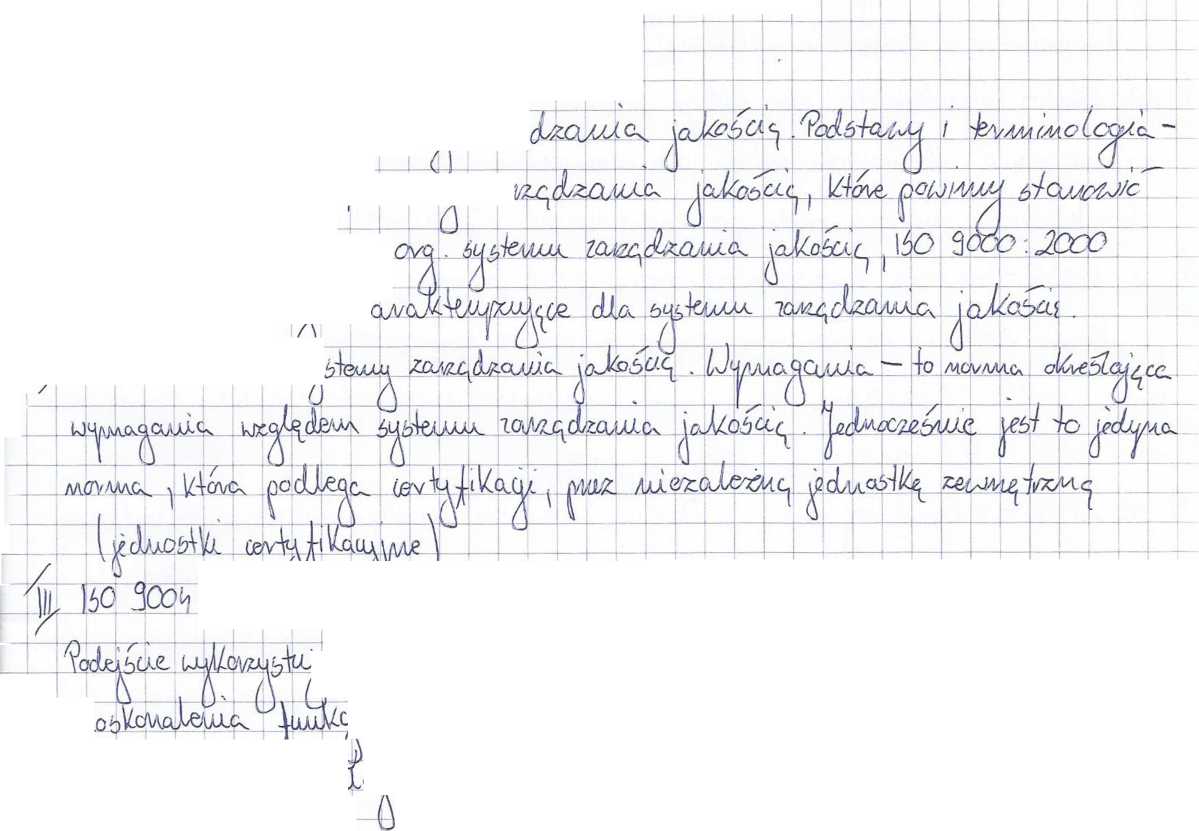 dzania jakością. Podstawy i terminologia -
rządzania jakością, które powinny stanowić
org. systemu zarządzania jakością, ISO 9000:2000
arakteryzujące dla systemu zarządzania jakością.
stemy zarządzania jakością. Wymagania - to norma określająca
wymagania względem systemu zarządzania jakością. Jednocześnie jest to jedyna
norma, która podlega certyfikacji, przez niezależną jednostkę zewnętrzną
(jednostki certyfikacyjne)
III ISO 9004
Podejście wykorzystu
oskonalenia funkc